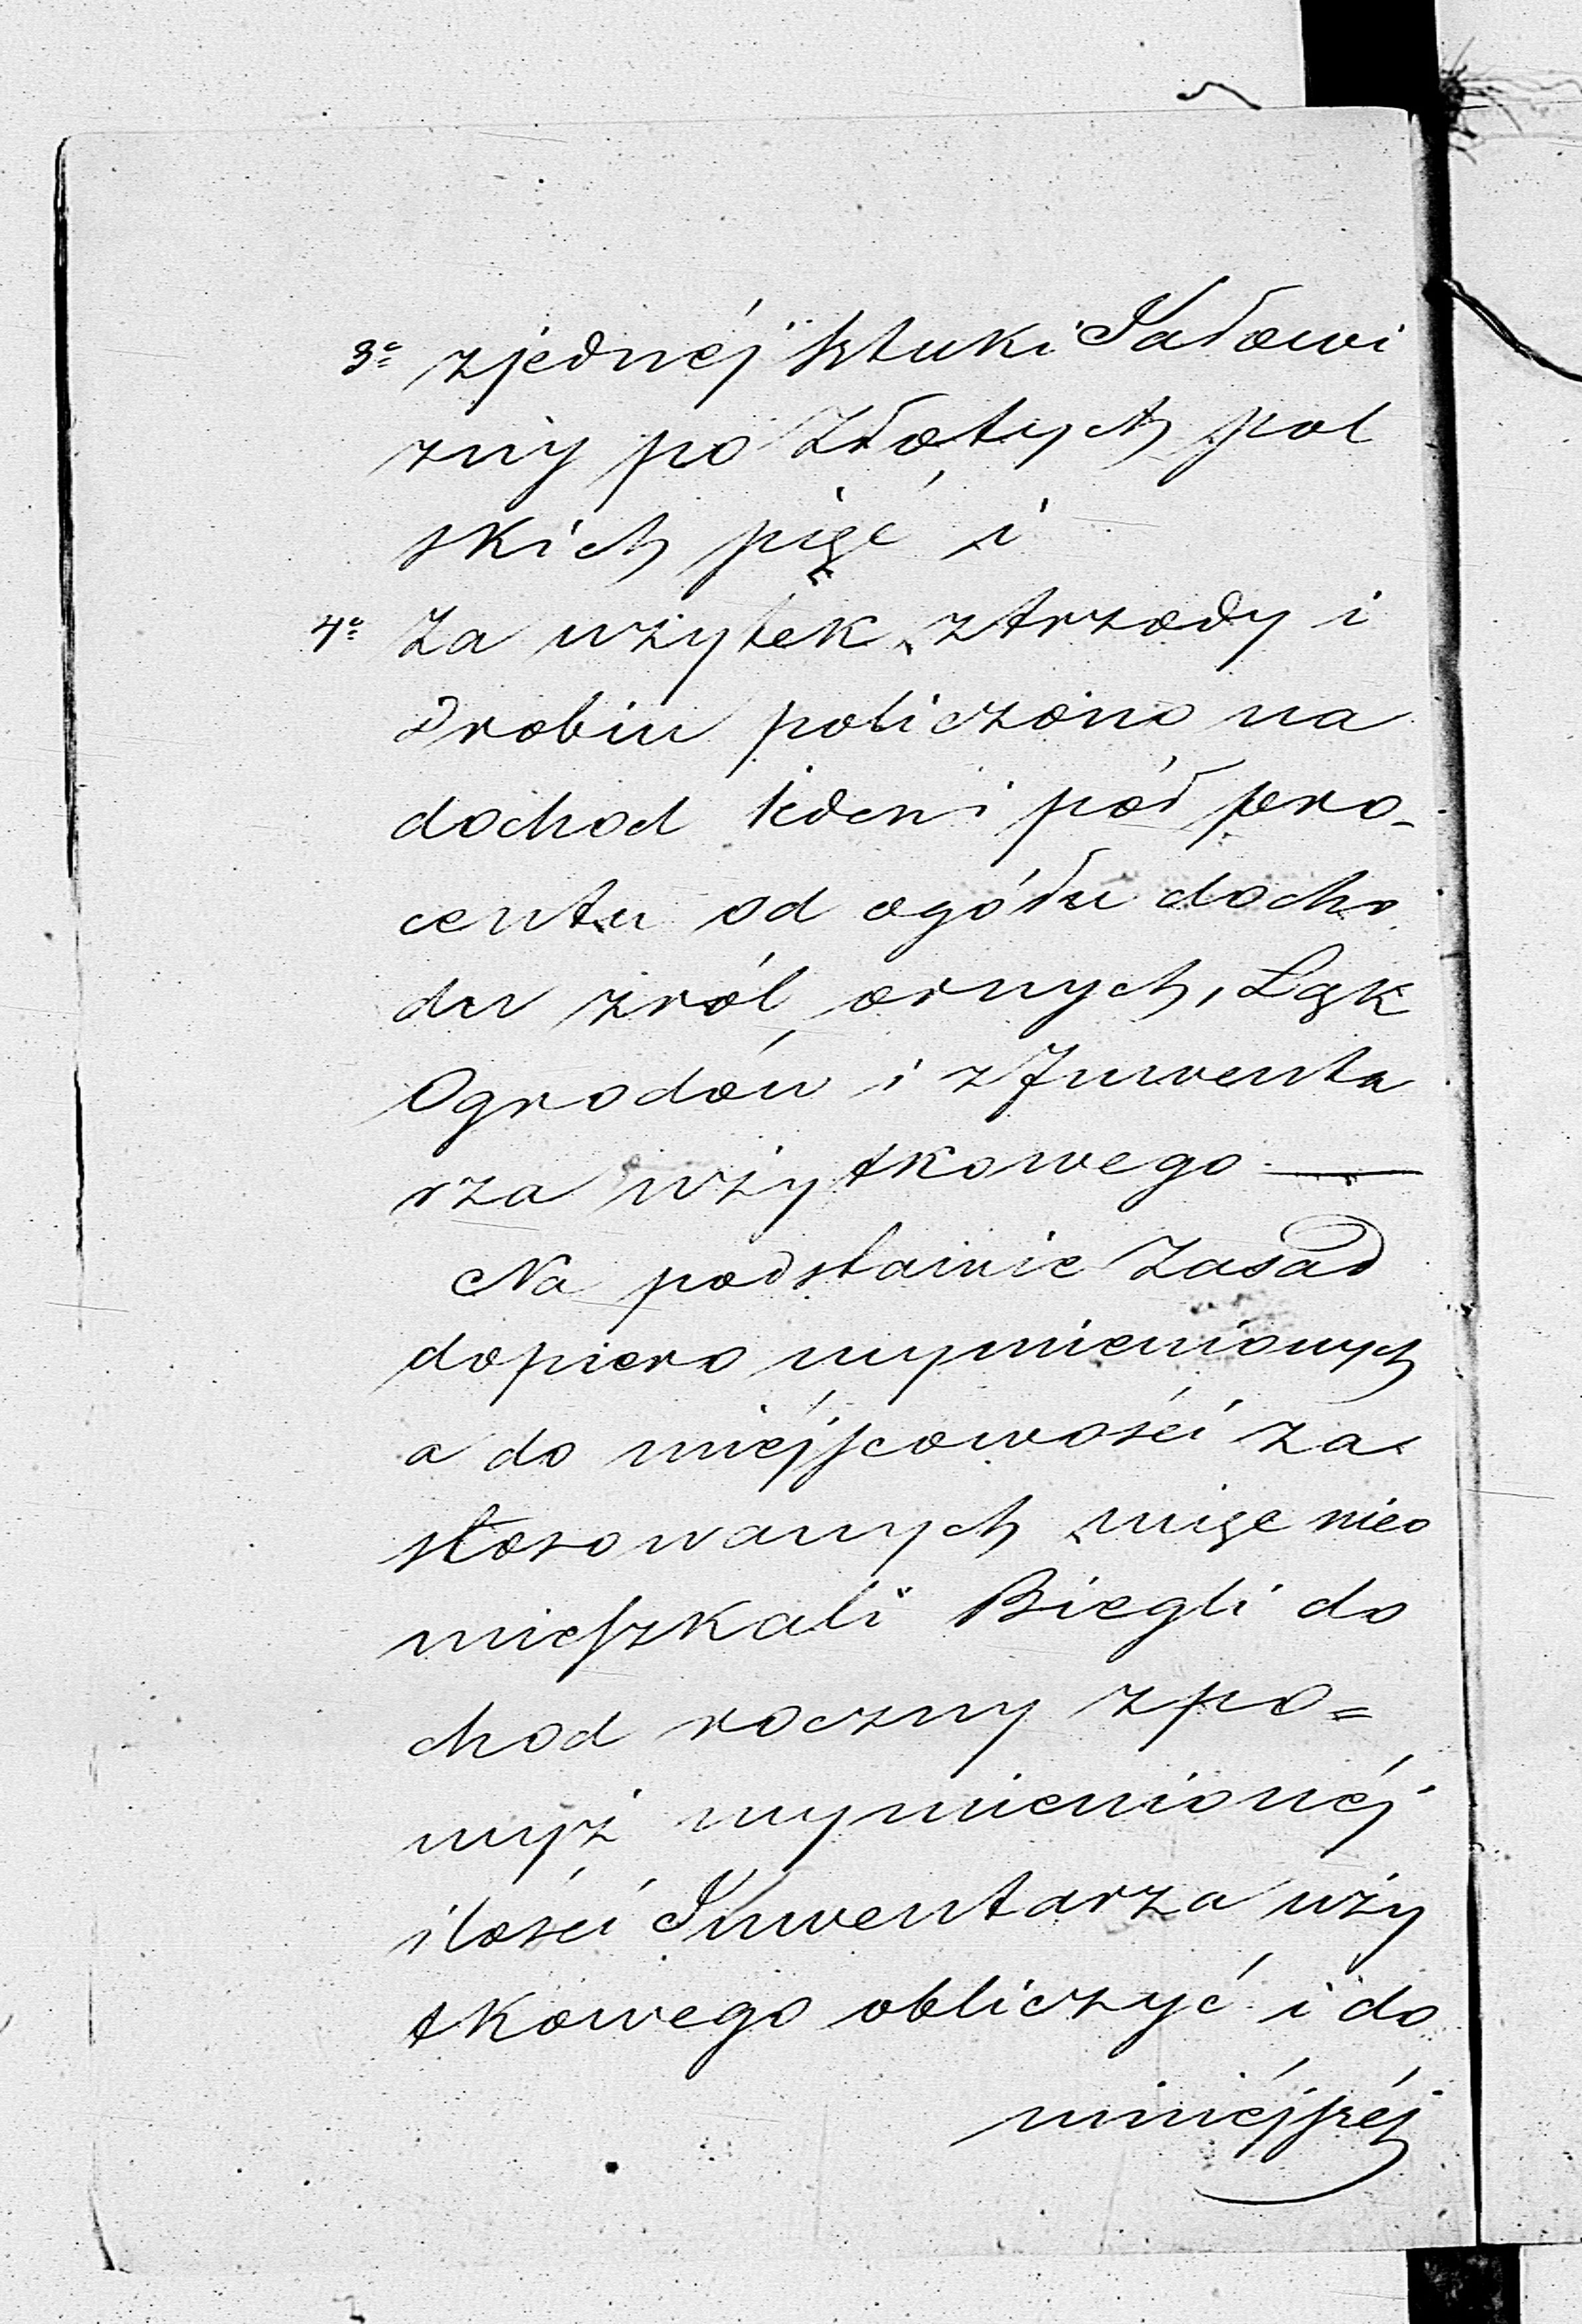 3o zjednéj sztuki Jałowi
zny po Złotych pol
skich pięć i
4o Za użytek ztrzody i
drobiu policzono na
dochod Jeden i pół pro-
centu od ogółu docho
du zról ornych, Łąk
Ogrodów i zInwenta
rza użytkowego —
Na podstawie Zasad
dopiero wymienionych
a do miéjscowości za
stosowanych, więc nieo
mieszkali Biegli do
chod roczny zpo=
wyż wymienionéj
ilości Inwentarza uży
tkowego obliczyć i do
niniéjszéj